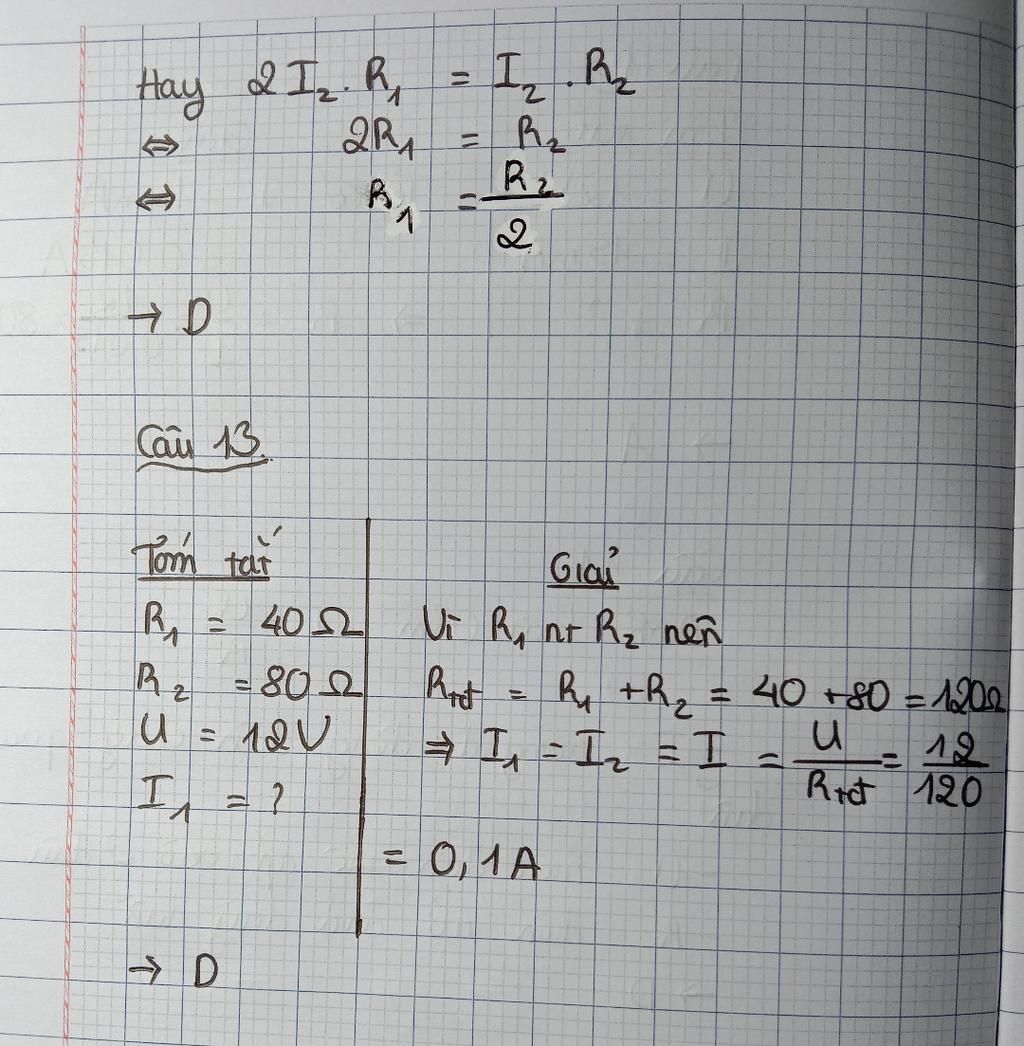 Hay 2I₂.R₁ = I₂.R₂
⇔ 2R₁ = R₂
⇔ R₁ = R₂/2
→ D
Câu 13.
Tóm tắt
R₁ = 40Ω
R₂ = 80Ω
U = 12V
I₁ = ?
Giải
Vì R₁ nt R₂ nên
Rtđ = R₁ + R₂ = 40 + 80 = 120Ω
⇒ I₁ = I₂ = I = U/Rtđ = 12/120
= 0,1A
→ D